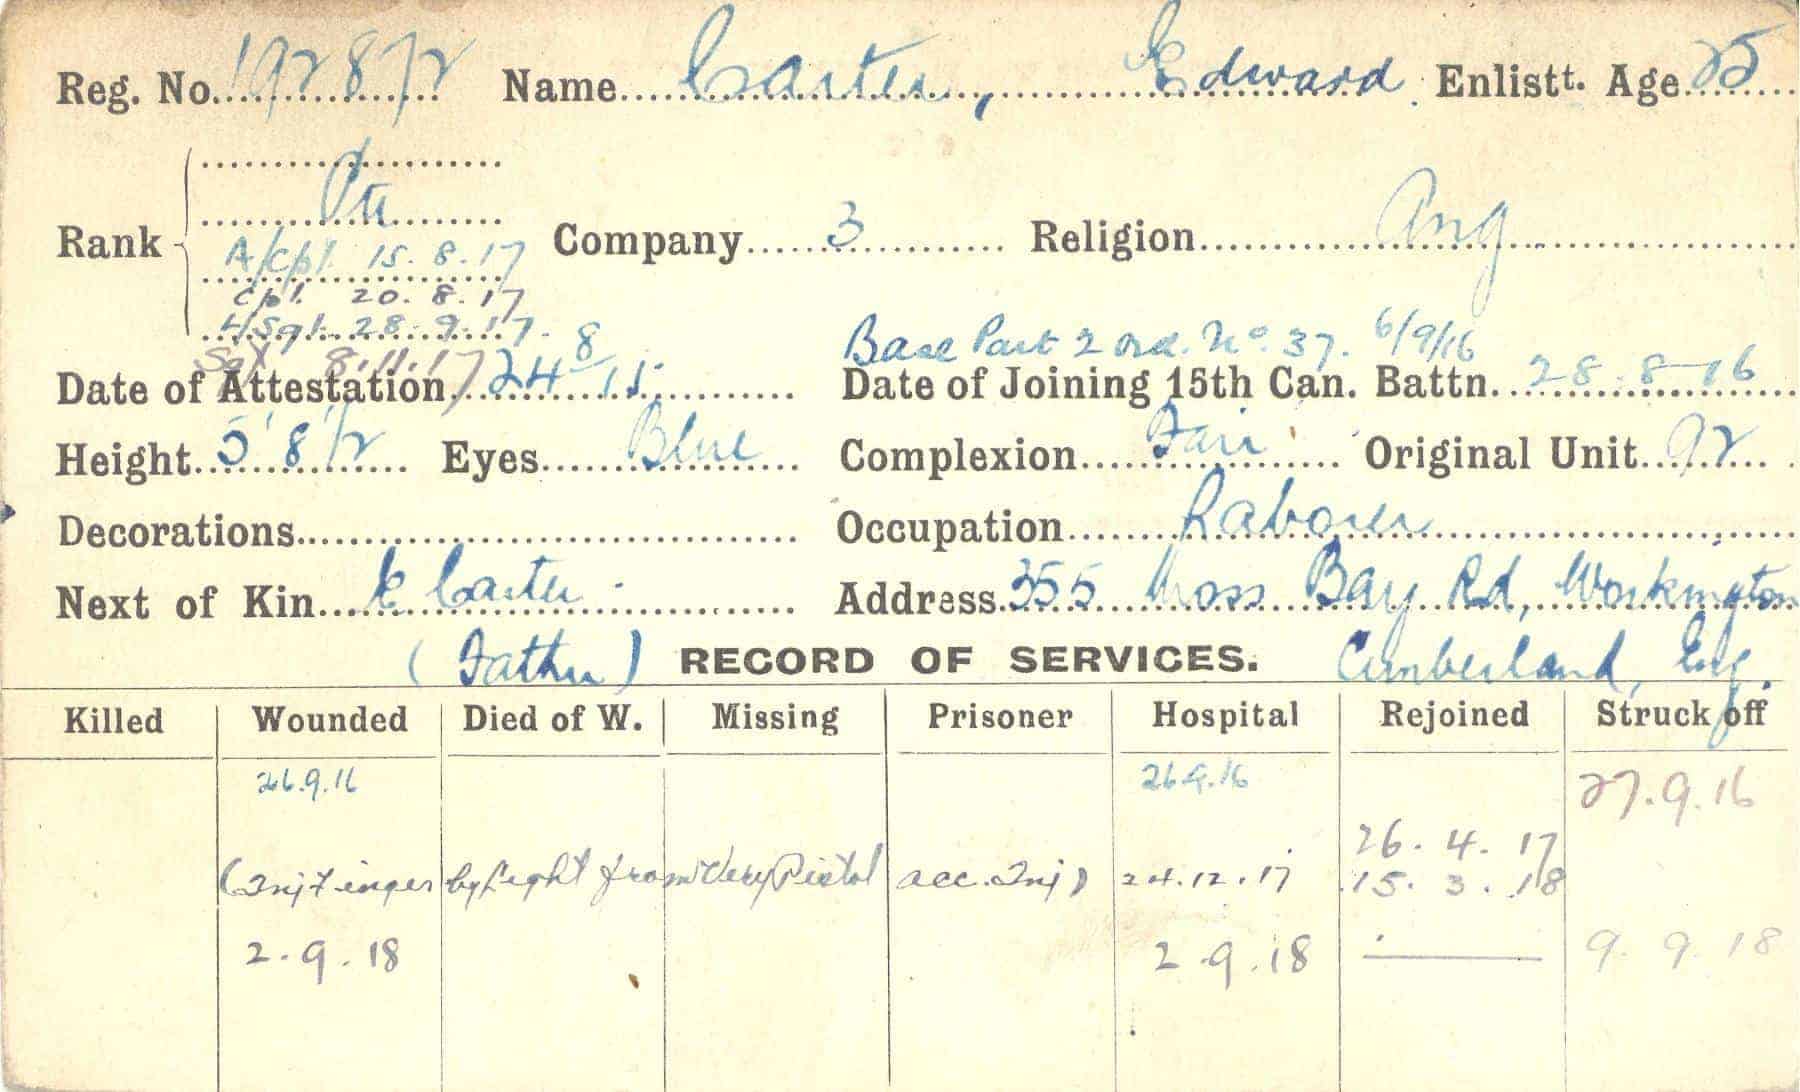 Reg. No. 192872 Name Carter, Edward Enlistt. Age 25
Pte
Rank A/Cpl. 15.8.17 Company 3 Religion Ang
Cpl. 20.8.17
L/Sgt. 28.9.17. Base Part 2 ord. No. 37. 6/9/16
Sgt 8.11.17
Date of Attestation 24 8/15 Date of Joining 15th Can. Battn. 28-8-16
Height 5' 8 1/2 Eyes Blue Complexion Fair Original Unit 92
Decorations Occupation Laborer
Next of Kin E Carter Address 355 Moss Bay Rd, Workington
(Father) RECORD OF SERVICES. Cumberland, Eng.
Killed Wounded Died of W. Missing Prisoner Hospital Rejoined Struck off
26.9.16 26.9.16 27.9.16
26.4.17
(Inj Finger by Light from Very Pistol acc. Inj) 24.12.17 15.3.18
2.9.18 2.9.18 9.9.18